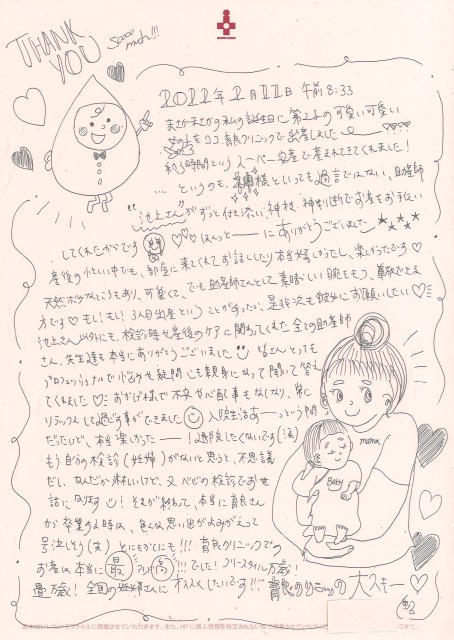 THANK YOU
Soooo much!!!
2022年2月22日 午前8:33
まさかまさかの私の誕生日に第2子の可愛い可愛い
女の子をココ育良クリニックで出産しました
約3時間というスーパー安産で産まれてきてくれました!
… というのも、といっても過言ではない、助産師
"池上さん"がずっと付き添い、神技、神対応でお産をお手伝い
してくれたからです ♡♡♡ ほんっと——にありがとうございました
産後の忙しい中でも、部屋に来てくれてお話ししたり本当嬉しかったし、楽しかったです♡
天然ボケなところもあり、可愛くて、でも助産師さんとして素晴しい腕をもつ、尊敬できる
方です♡もし!もし!3人目出産ということがあったら、是非次も彼女にお願いしたい♡
池上さん以外にも、検診時や産後のケアに関わってくれた全ての助産師
さん、先生達も本当にありがとうございました 皆さんとっても
プロフェッショナルで悩みや疑問にも親身になって聞いて答え
てくれました♡おかげ様で不安や心配事もなくなり、常に
リラックスして過ごす事ができました 入院生活あーっという間
だったけど、本当楽しかった——!退院したくないです(涙)
もう自分の検診(妊婦)がないと思うと、不思議
だし、なんだか淋しいけど、又ベビの検診でお世
話になります!それが終わって、本当に育良さん
から卒業する時は、色んな思い出がよみがえって
号泣しそう(笑)とにもかくにも!!!育良クリニックでの
お産は本当に最&高!!!でした!フリースタイル万歳!
畳万歳!全国の妊婦さんにオススメしたいです!!!育良クリニックの大スキー
mama
BABY